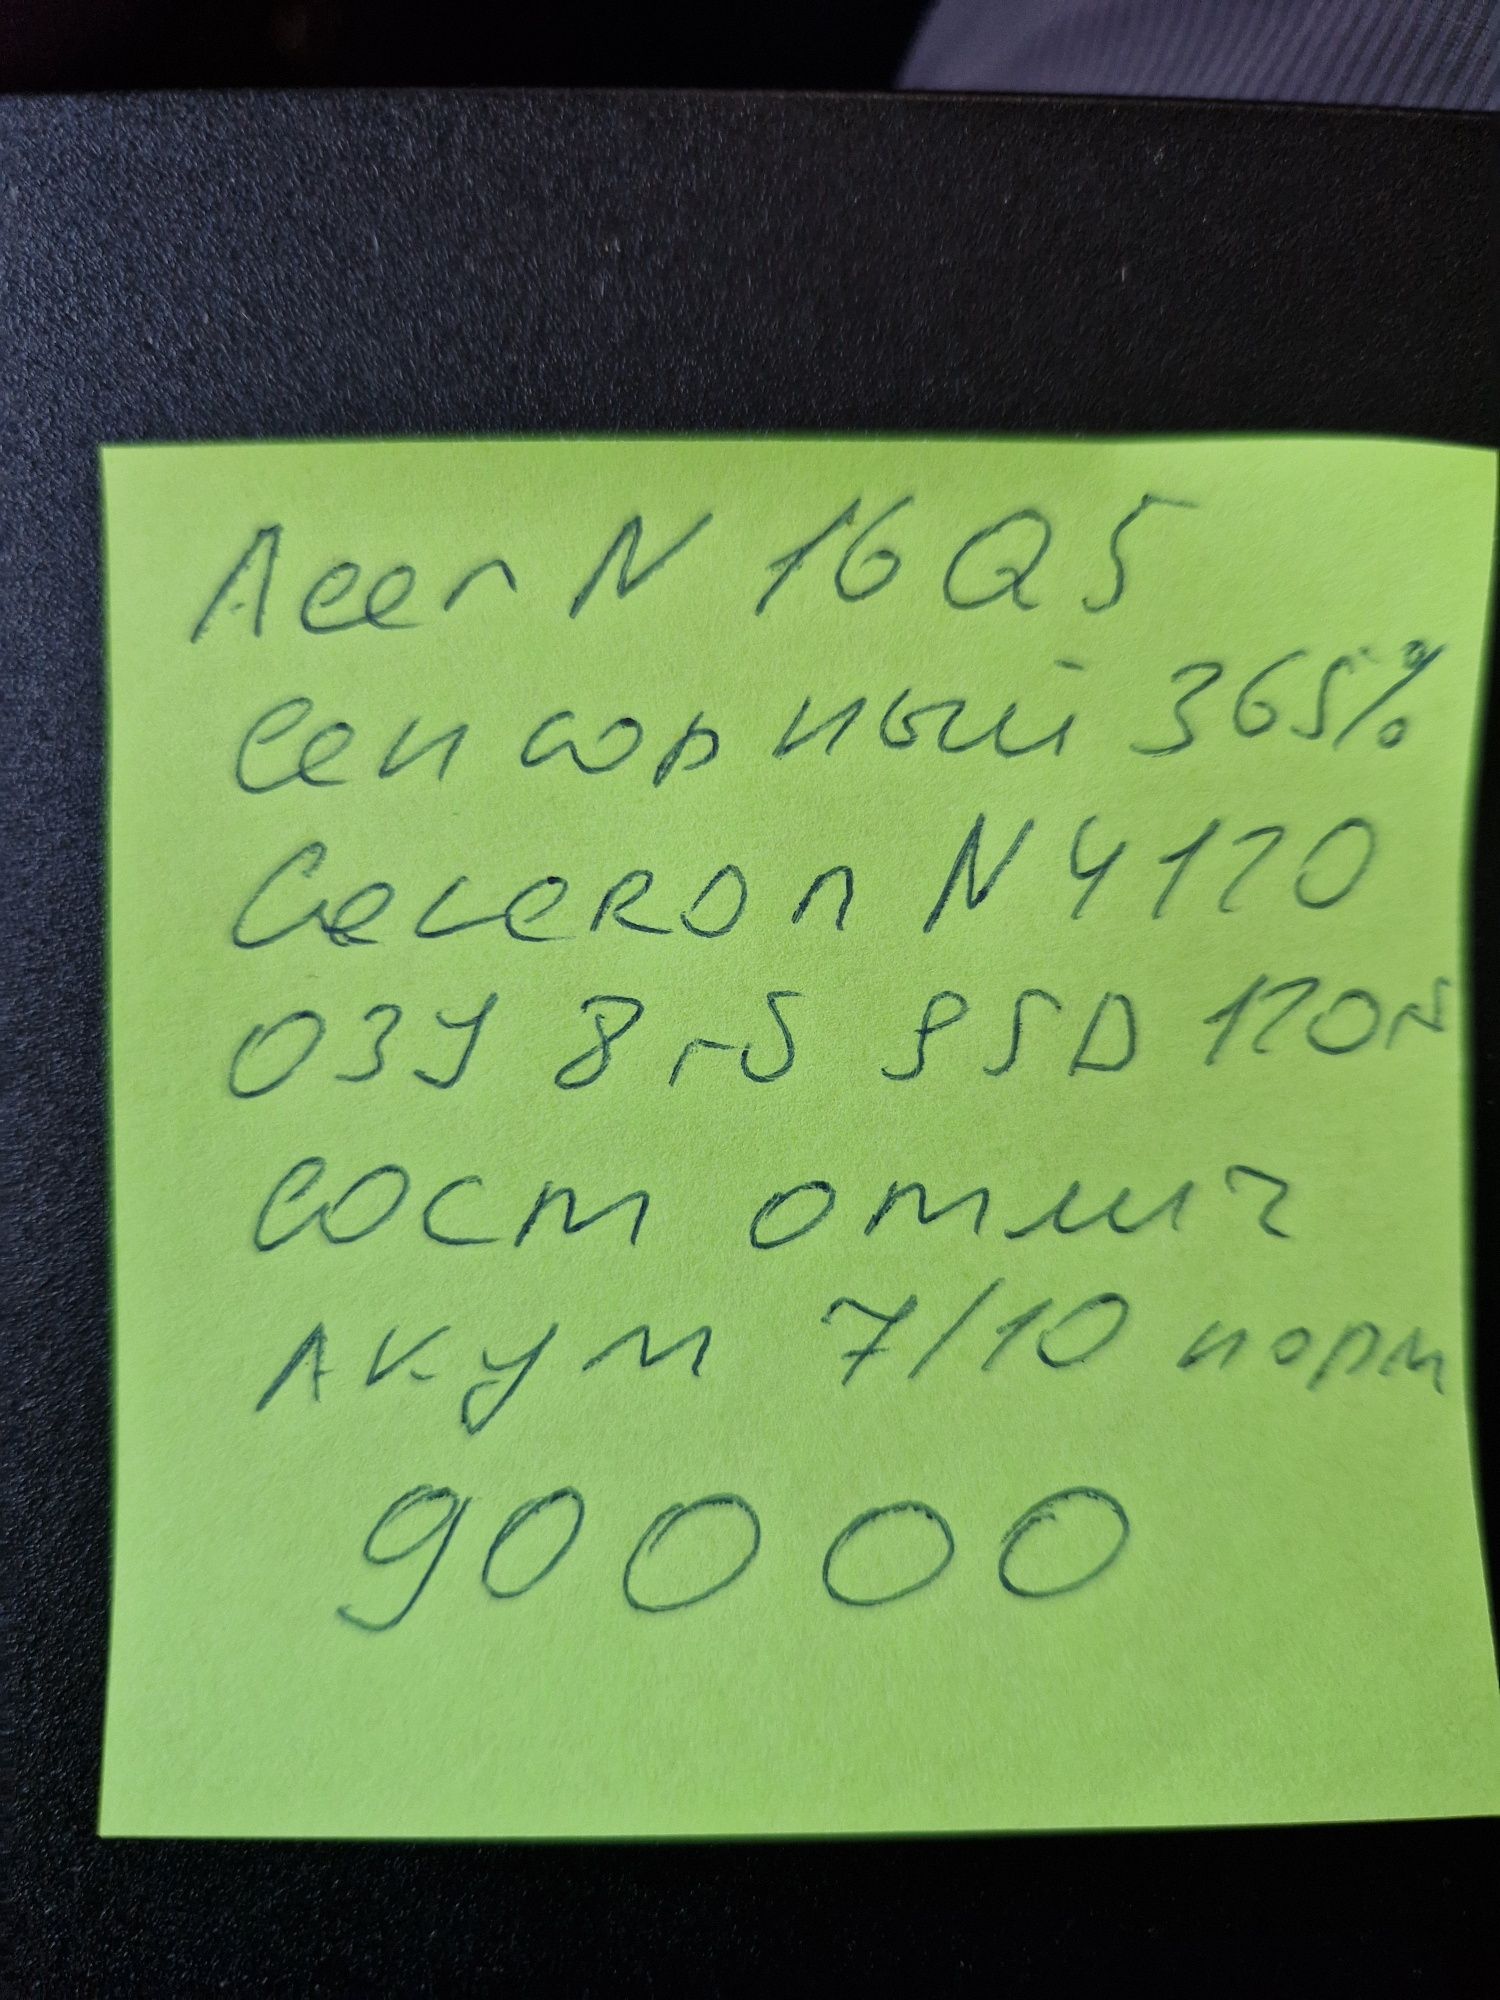 Acer N 16Q5
Сенсорный 365%
Celeron N4120
ОЗУ 8 гб SSD 120г
Сост отлич
Акум 7/10 норм
90000